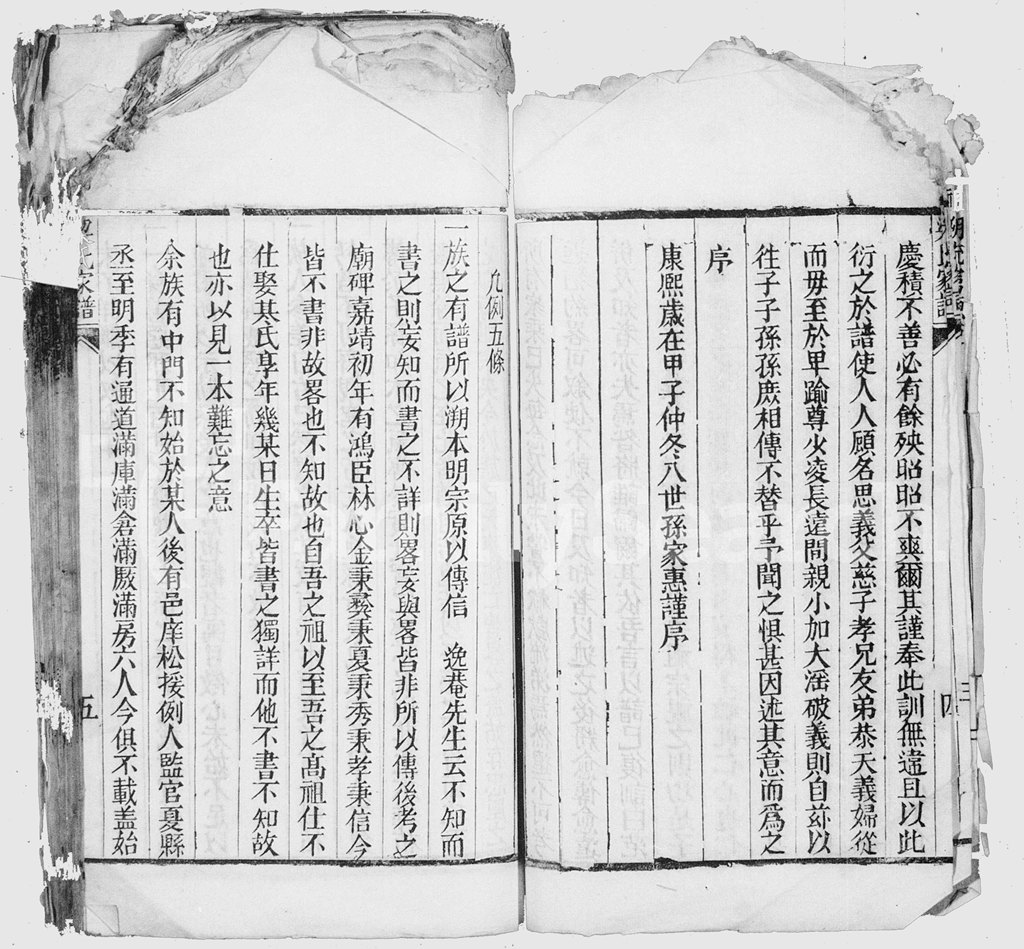 慶積不善必有餘殃昭昭不爽爾其謹奉此訓無違且以此
衍之於譜使人人顧名思義父慈子孝兄友弟恭夫義婦從
而毋至於卑踰尊少凌長遠間親小加大滛破義則自茲以
徃子子孫孫庶相傳不替乎予聞之惧甚因述其意而爲之
序
康熙歲在甲子仲冬八世孫家惠謹序
四
凡例五條
一族之有譜所以溯本明宗原以傳信 逸菴先生云不知而
書之則妄知而書之不詳則畧妄與畧皆非所以傳後考之
廟碑嘉靖初年有鴻臣林心金秉彜秉夏秉秀秉孝秉信今
皆不書非故畧也不知故也自吾之祖以至吾之髙祖仕不
仕娶某氏享年幾某日生卒皆書之獨詳而他不書不知故
也亦以見一本難忘之意
余族有中門不知始於某人後有邑庠松授例人監官夏縣
丞至明季有通道滿庫滿倉滿厫滿房六人今俱不載盖始
氏家譜
五